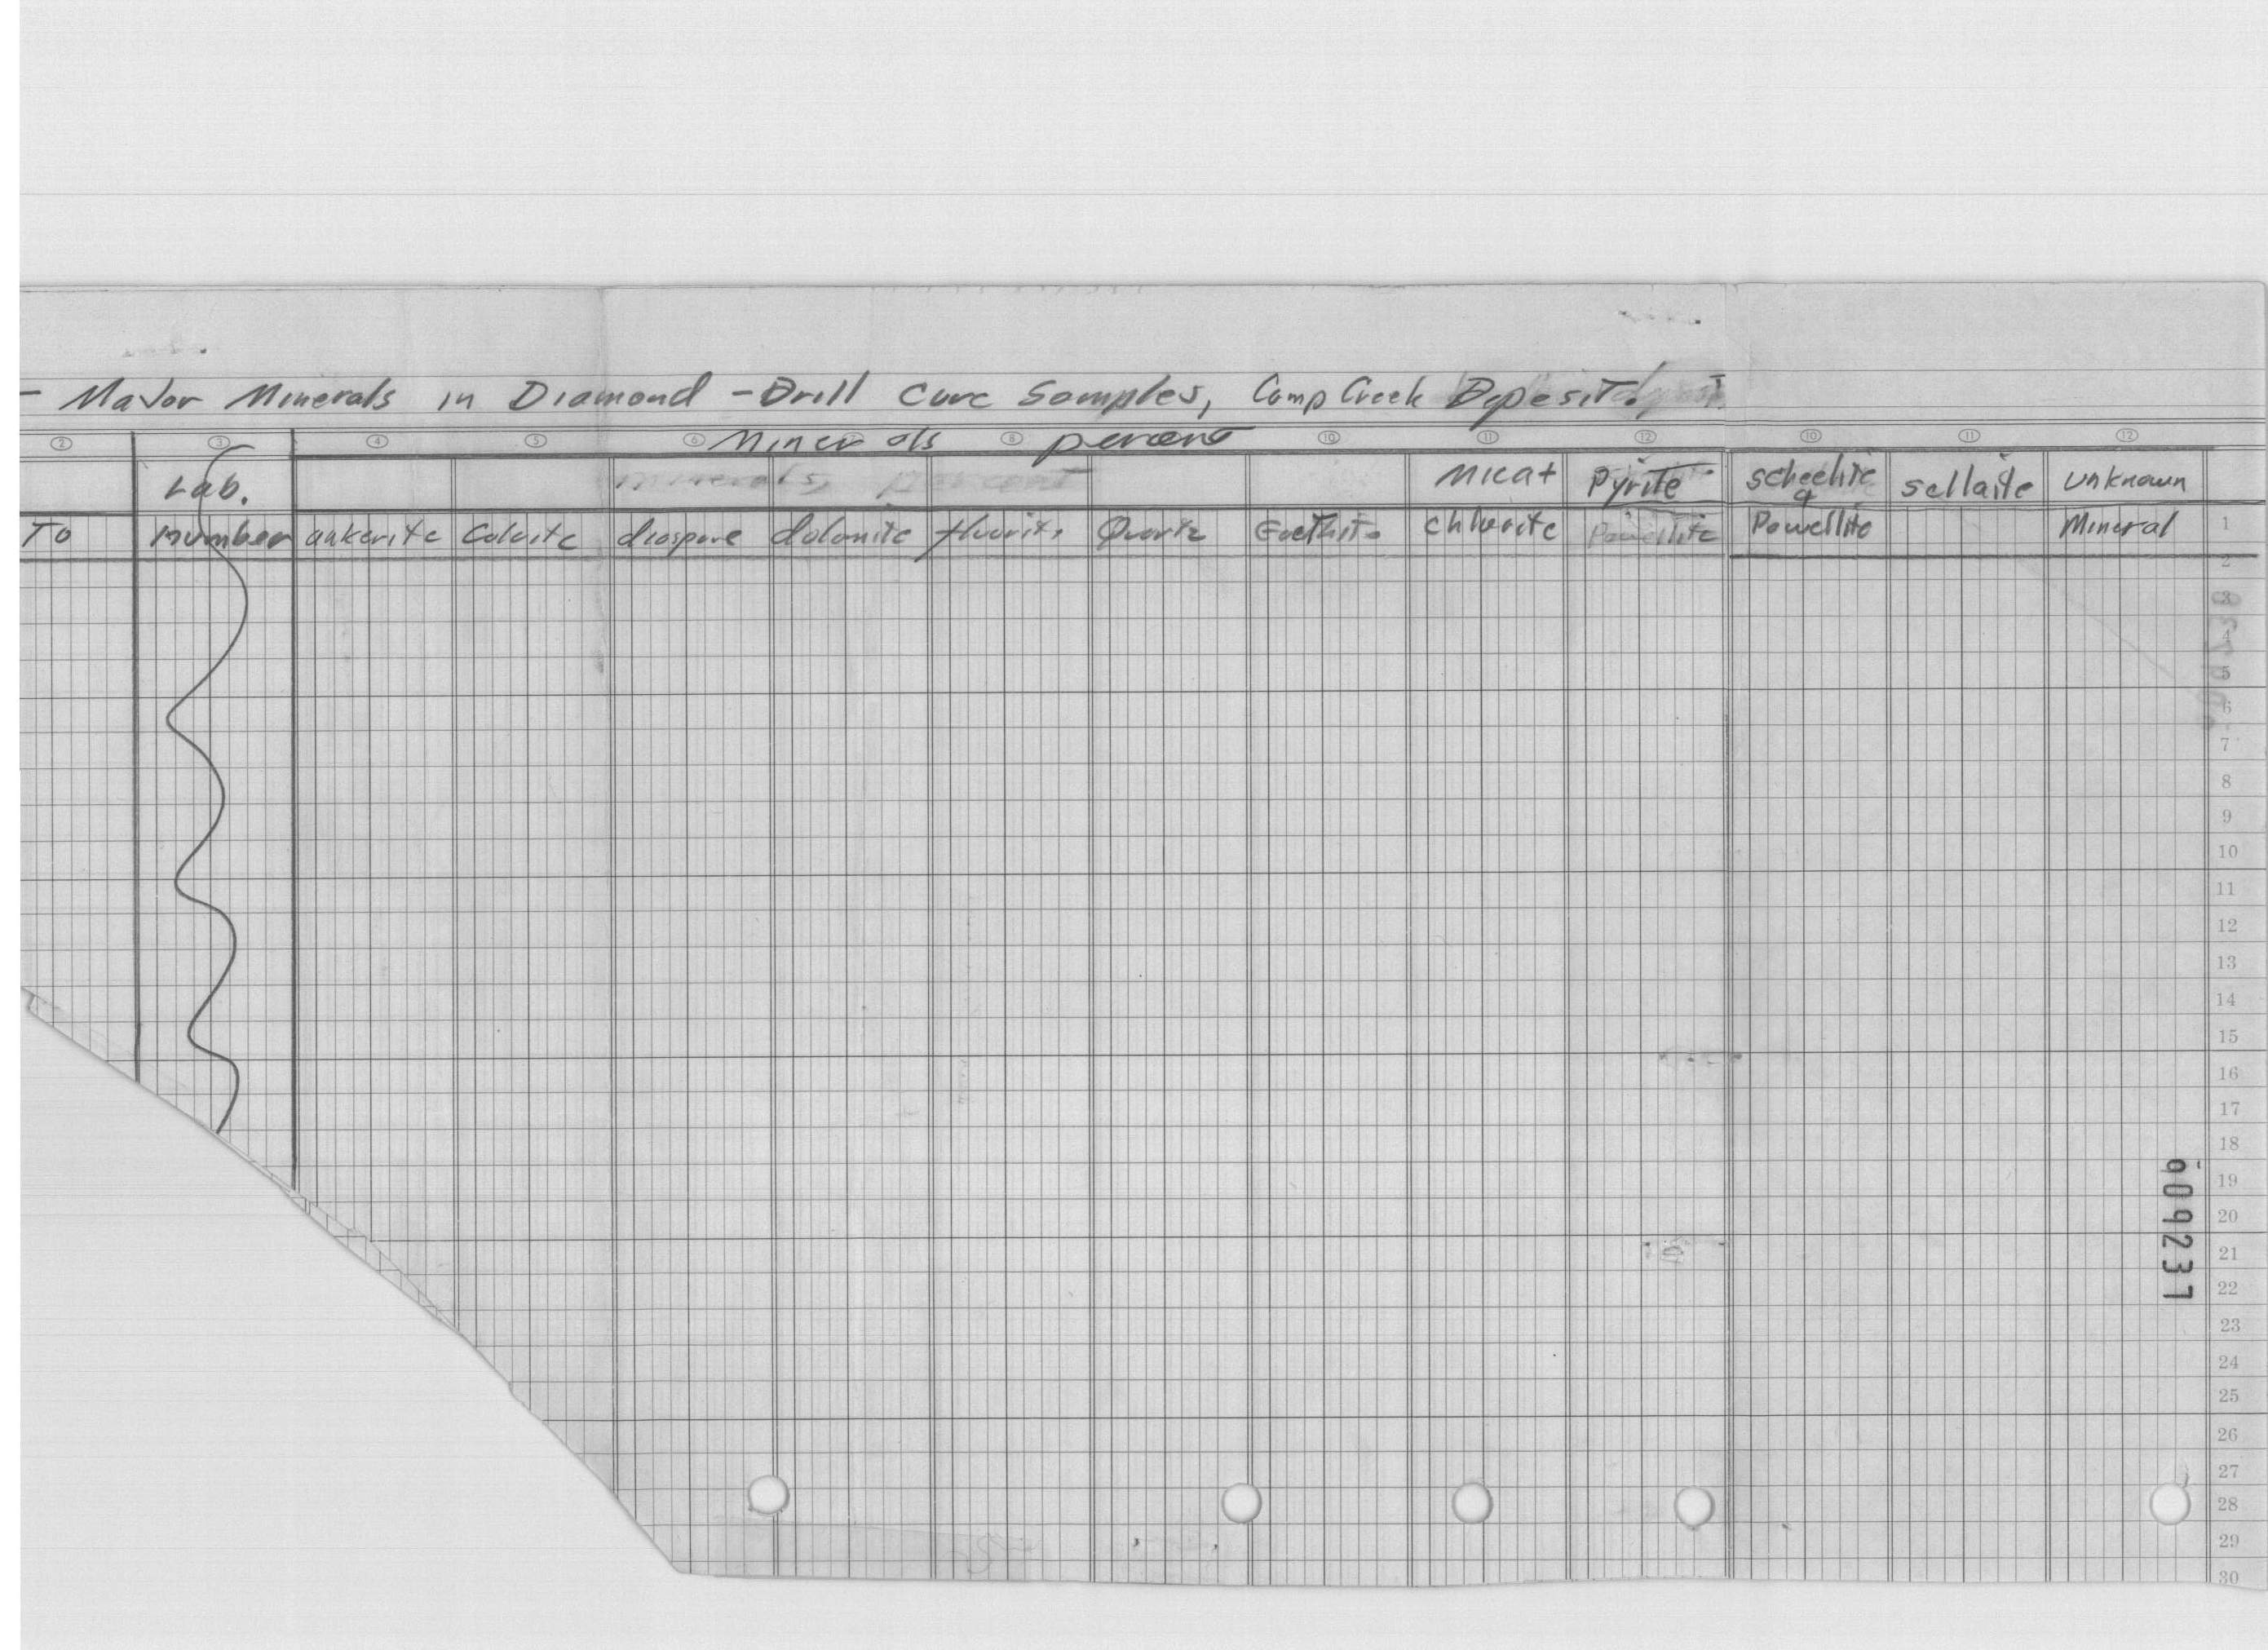 - Major Minerals in Diamond - Drill Core Samples, Camp Creek Deposit.
2 3 4 5 6 8 10 11 12 10 11 12
Minerals percent
minerals, percent
Lab. Mica + Pyrite scheelite & sellaite unknown
To number ankerite Calcite diaspore dolomite fluorite Quartz Goethite chlorite Powellite Powellite Mineral 1
2
3
4
5
6
7
8
9
10
11
12
13
14
15
16
17
18
19
20
21
22
23
24
25
26
27
28
29
30